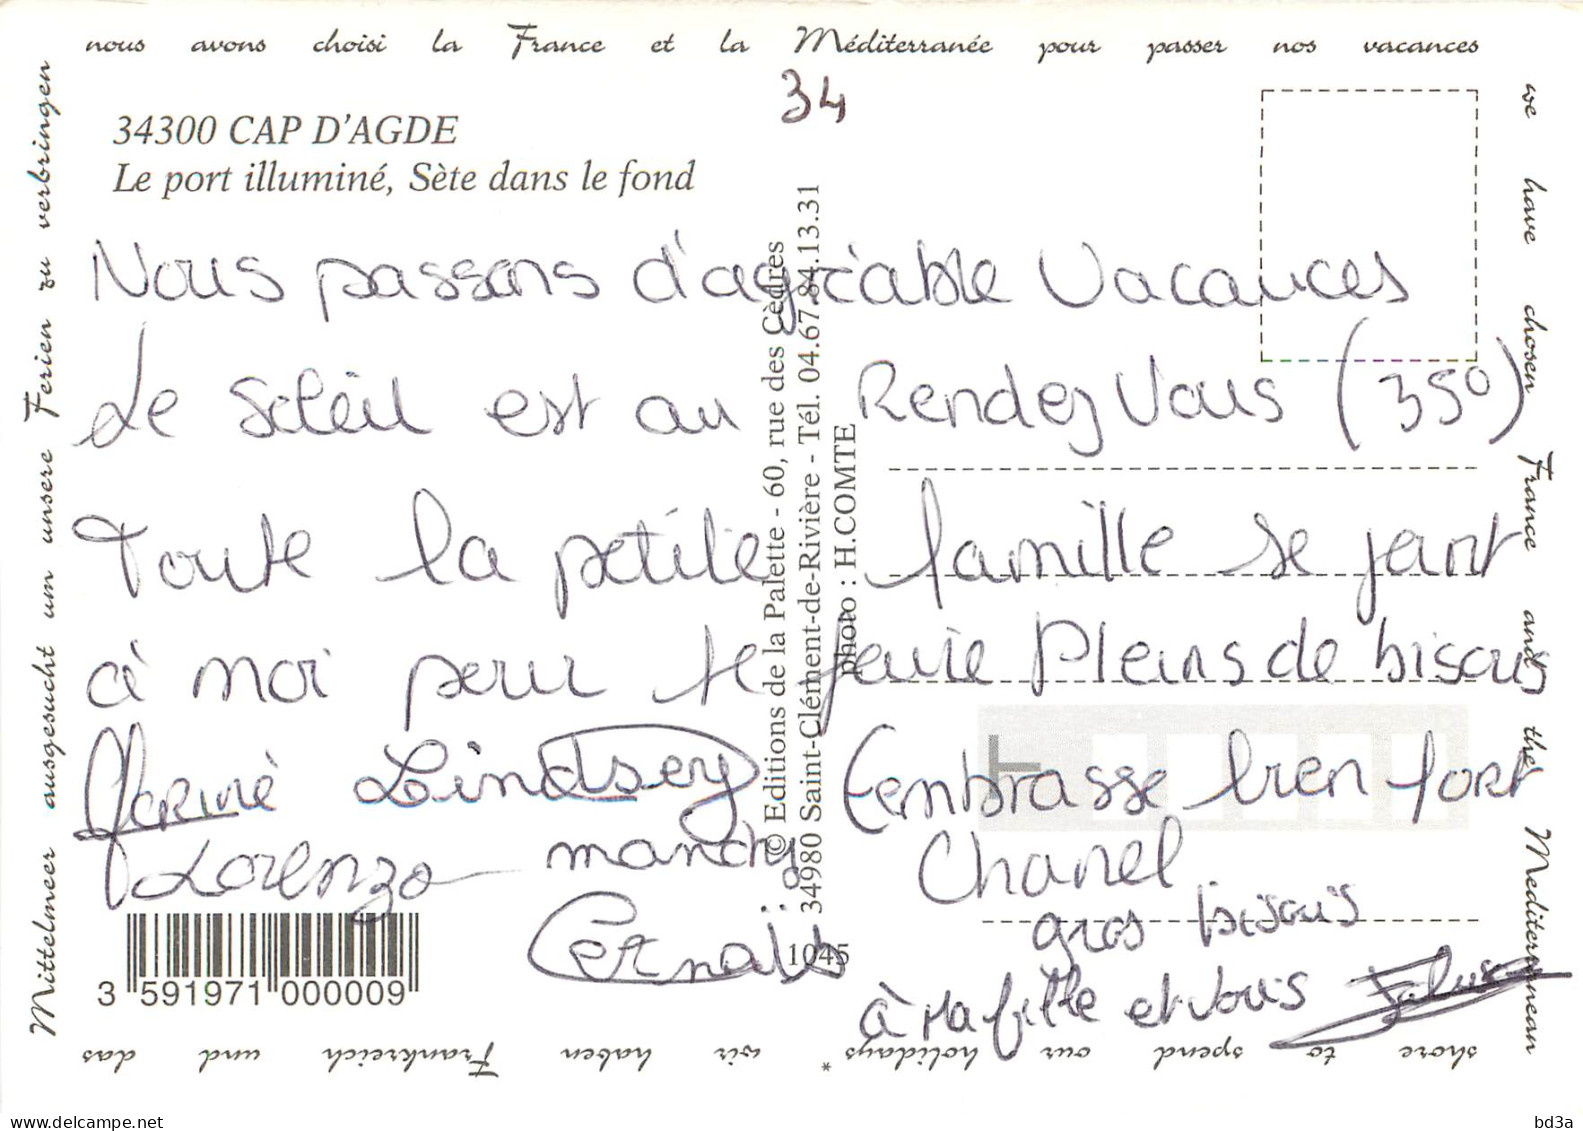 nous avons choisi la France et la Méditerranée pour passer nos vacances
34
34300 CAP D'AGDE
Le port illuminé, Sète dans le fond
Nous passons d'agréable Vacances
Le Soleil est au Rendez Vous (35°)
Toute la petite famille se joint
à moi pour te faire Pleins de bisous
Lindsey
(embrasse bien fort
Lorenzo mandy Chanel
gros bisous
à Ma fille et Vous
we have chosen France and the Mediterranean
shore to spend our holidays *
wir haben Frankreich und das
Mittelmeer ausgesucht um unsere Ferien zu verbringen
© Editions de la Palette - 60, rue des Cèdres
34980 Saint-Clément-de-Rivière - Tél. 04.67.84.13.31
photo : H.COMTE
1045
3 591971 000009
delcampe.net
bd3a